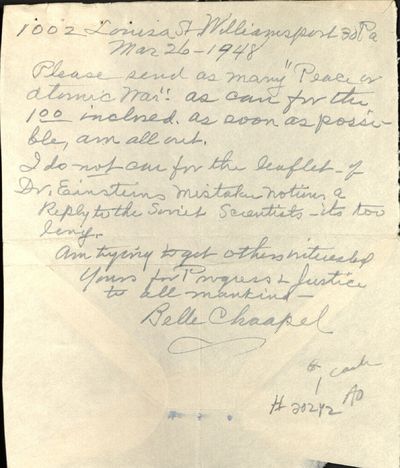 1002 Louisa St Williamsport 20 Pa
Mar 26-1948
Please send as many "Peace or
Atomic War": as can for the
1 00 inclosed. as soon as possi-
ble, am all out.
I do not care for the leaflet of
Dr. Einsteins Mistaken notions, a
Reply to the Soviet Scientists - its too
long.
Am trying to get others interested
Yours for Progress & Justice
to all mankind -
Belle Chaapel
1 cash
# 20242 AO